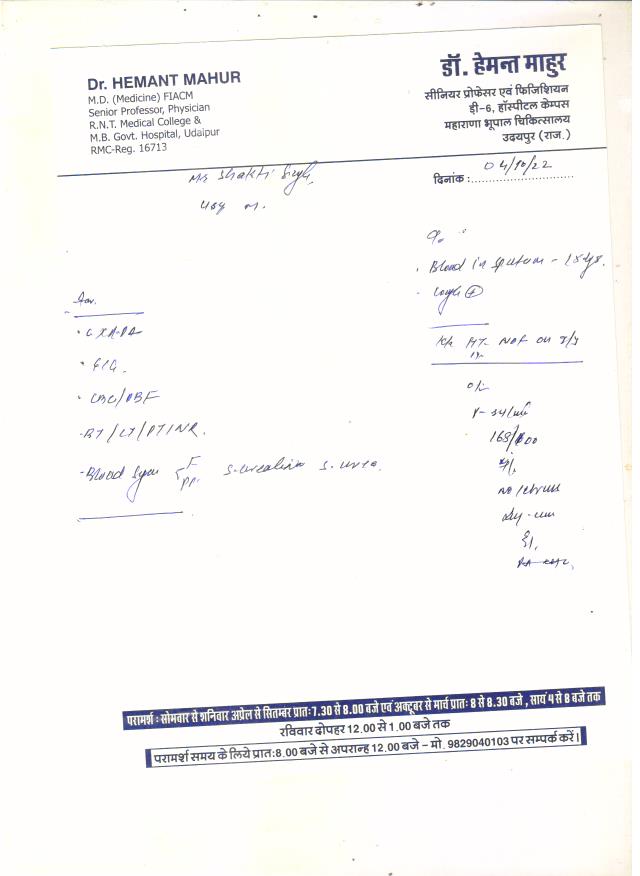 Dr. HEMANT MAHUR
M.D. (Medicine) FIACM
Senior Professor, Physician
R.N.T. Medical College &
M.B. Govt. Hospital, Udaipur
RMC-Reg. 16713
डॉ. हेमन्त माहुर
सीनियर प्रोफेसर एवं फिजिशियन
डी-6, हॉस्पीटल केम्पस
महाराणा भूपाल चिकित्सालय
उदयपुर (राज.)
Mr Shakti Singh
दिनांक : 04/10/22
Blood in sputum -
Cough +
K/c HT- Not on
O/E
168/100
• CXR-PA
• ECG.
• CBC/PBF
-BT/CT/PTINR.
-Blood Sugar F PP. S.creatinine S. urea
परामर्श : सोमवार से शनिवार अप्रेल से सितम्बर प्रातः 7.30 से 8.00 बजे एवं अक्टूबर से मार्च प्रातः 8 से 8.30 बजे , सायं 4 से 8 बजे तक
रविवार दोपहर 12.00 से 1.00 बजे तक
परामर्श समय के लिये प्रात:8.00 बजे से अपरान्ह 12.00 बजे – मो. 9829040103 पर सम्पर्क करें।